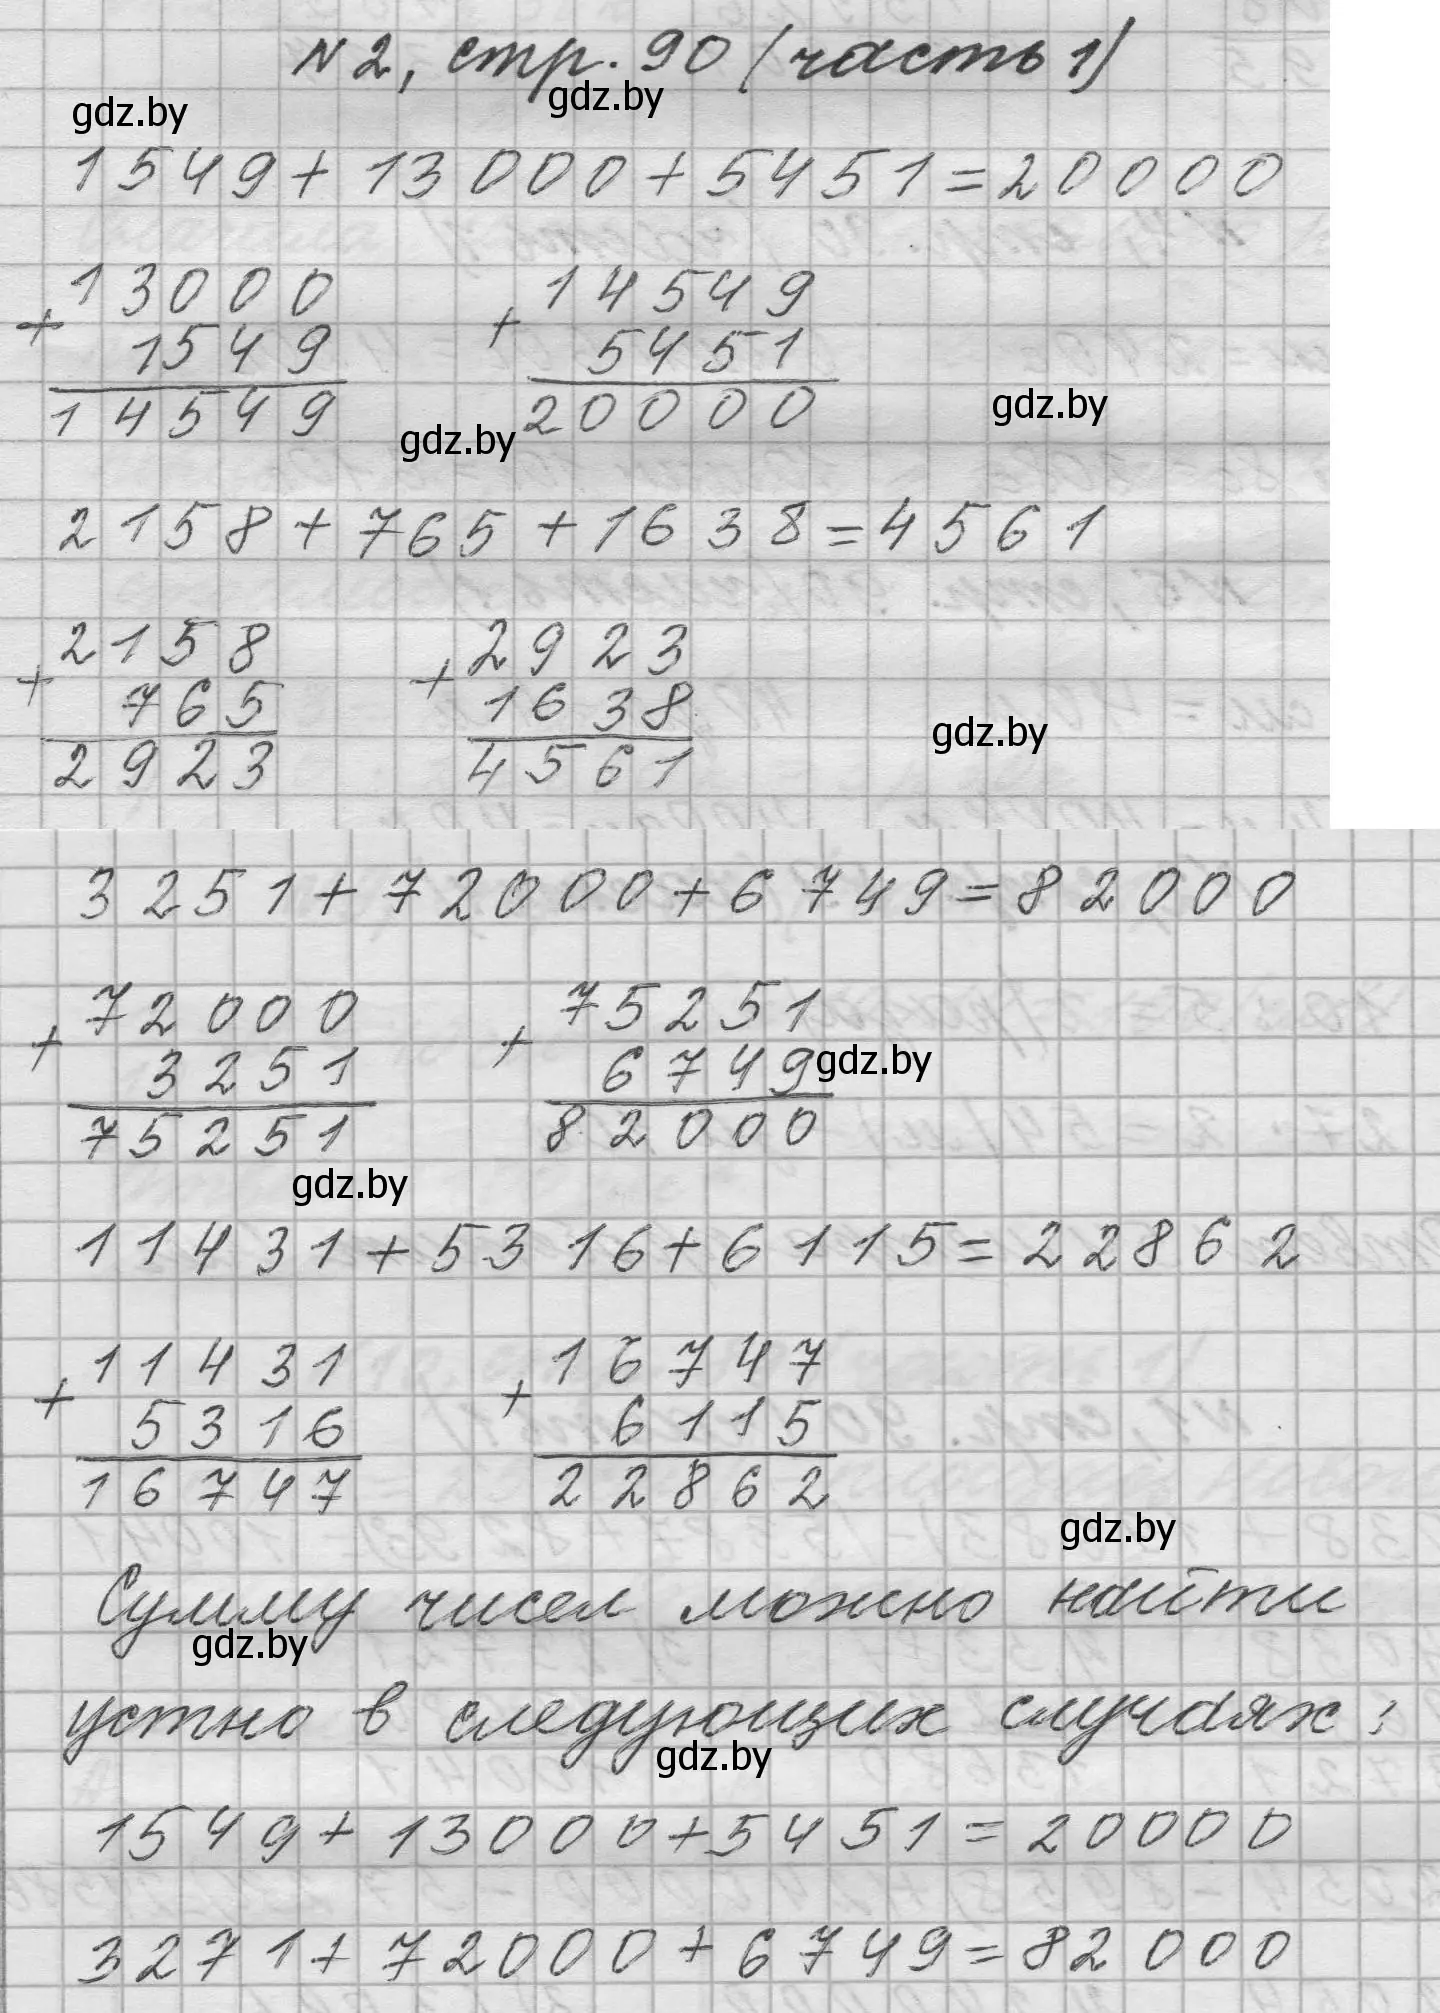 N2, стр. 90 (часть 1)
gdz.by
gdz.by
1549+13000+5451=20000
13000
+ 1549
14549
14549
+ 5451
20000
gdz.by
gdz.by
2158+765+1638=4561
2158
+ 765
2923
2923
+ 1638
4561
gdz.by
3251+72000+6749=82000
72000
+ 3251
75251
75251
+ 6749
82000
gdz.by
gdz.by
11431+5316+6115=22862
11431
+ 5316
16747
16747
+ 6115
22862
gdz.by
Сумму чисел можно найти
gdz.by
устно в следующих случаях:
gdz.by
1549+13000+5451=20000
3271+72000+6749=82000